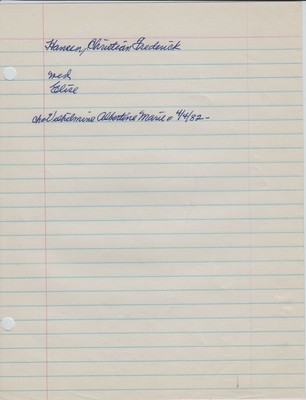 Hansen, Christian Frederick
med
Elise
ch: Vilhelmine Albertine Marie b 4/4/82-